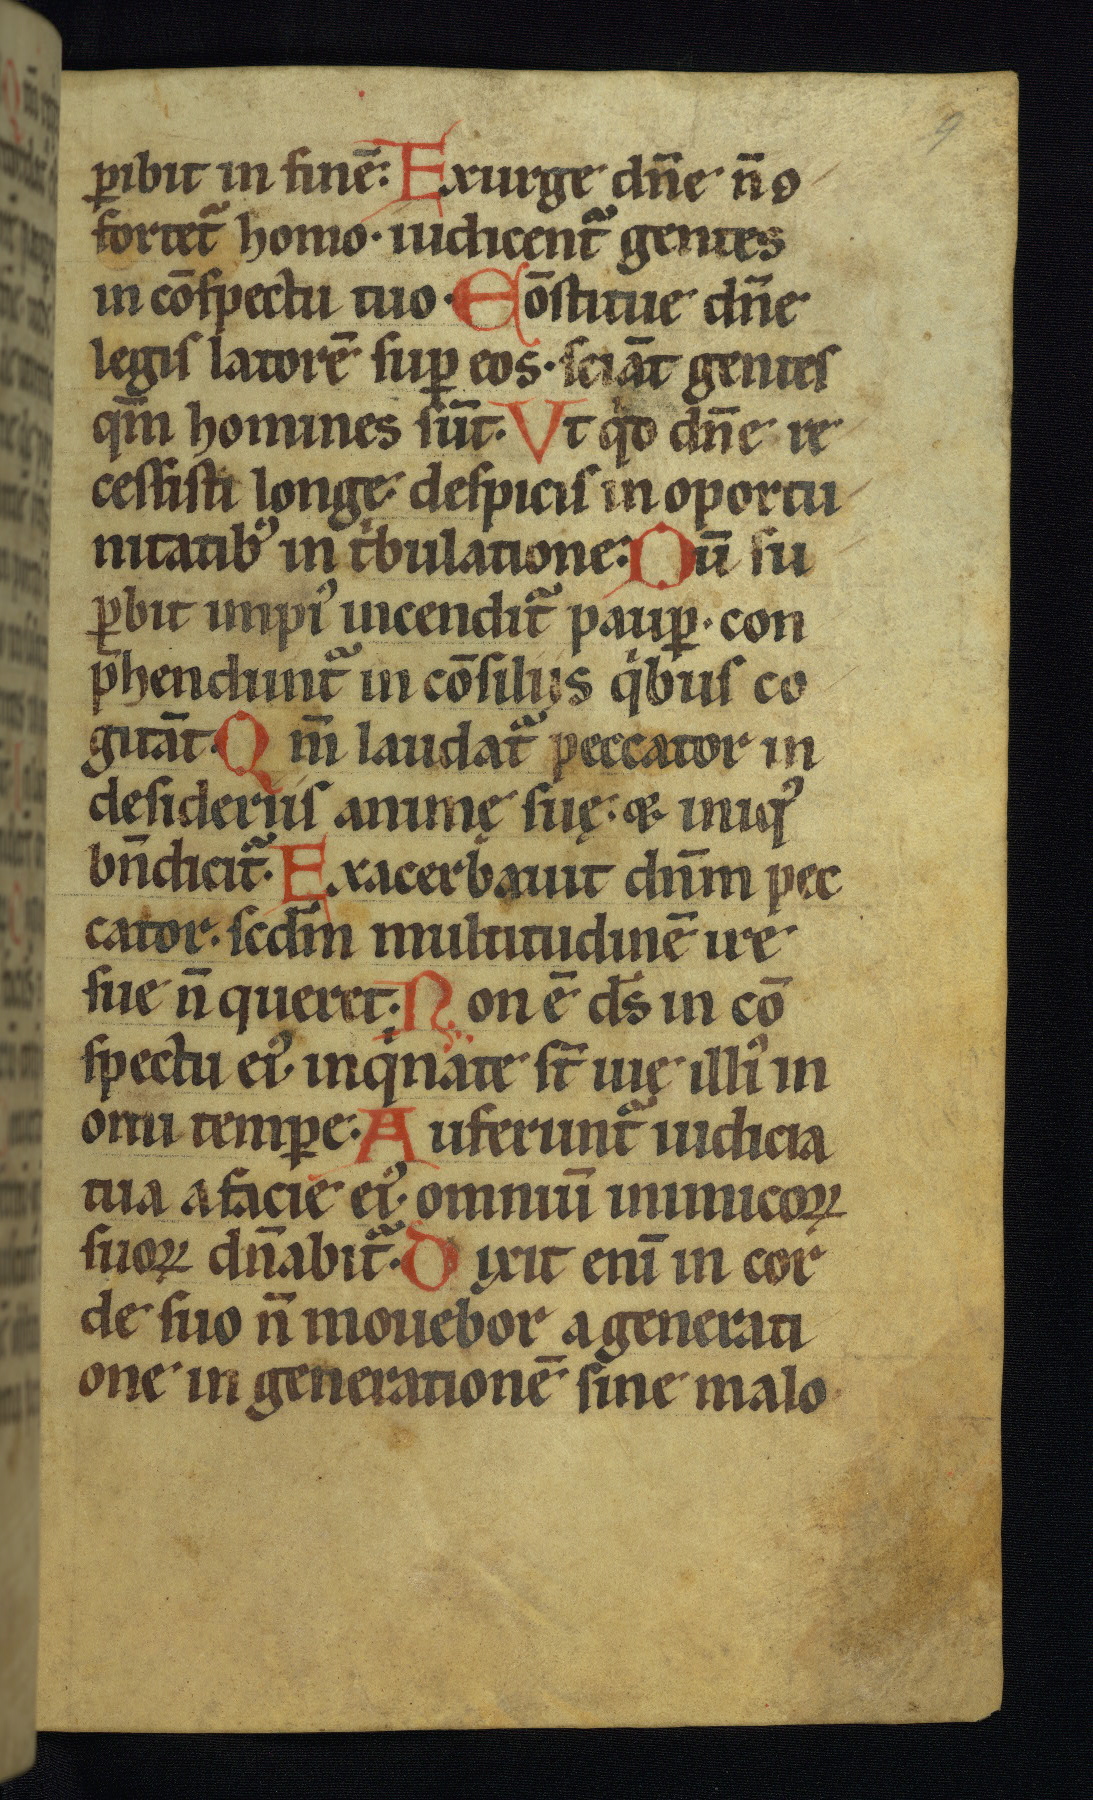 9
ꝑibit in finē: Exurge dn̄e n̄ ↄ
fortet᷑ homo· iudicent᷑ gentes
in cōspectu tuo· Cōstitue dn̄e
legis latorē suꝑ eos· sciāt gentes
qm̄ homines sūt. Vt qͥd dn̄e re
cessisti longe· despicis in oportu
nitatibꝰ in tͥbulatione: Dū su
ꝑbit impiꝰ incendit᷑ pauꝑ· con
p̄hendunt᷑ in cōsiliis qͥbus co
gitāt· Qm̄ laudat᷑ peccator in
desideriis animę suę: ⁊ iniqꝰ
bn̄dicit᷑· Exacerbauit dn̄m pec
cator· scdm̄ multitudinē ire
sue n̄ queret· Non ē ds̄ in cō
spectu eiꝰ· inqͥnate st̄ uię illiꝰ in
om̄i temꝑe: Auferunt᷑ iudicia
tua a facie eiꝰ· omniū inimicoꝝ
suoꝝ dn̄abit᷑· Dixit eni̅ in cor
de suo n̄ mouebor a generati
one in generationē sine malo